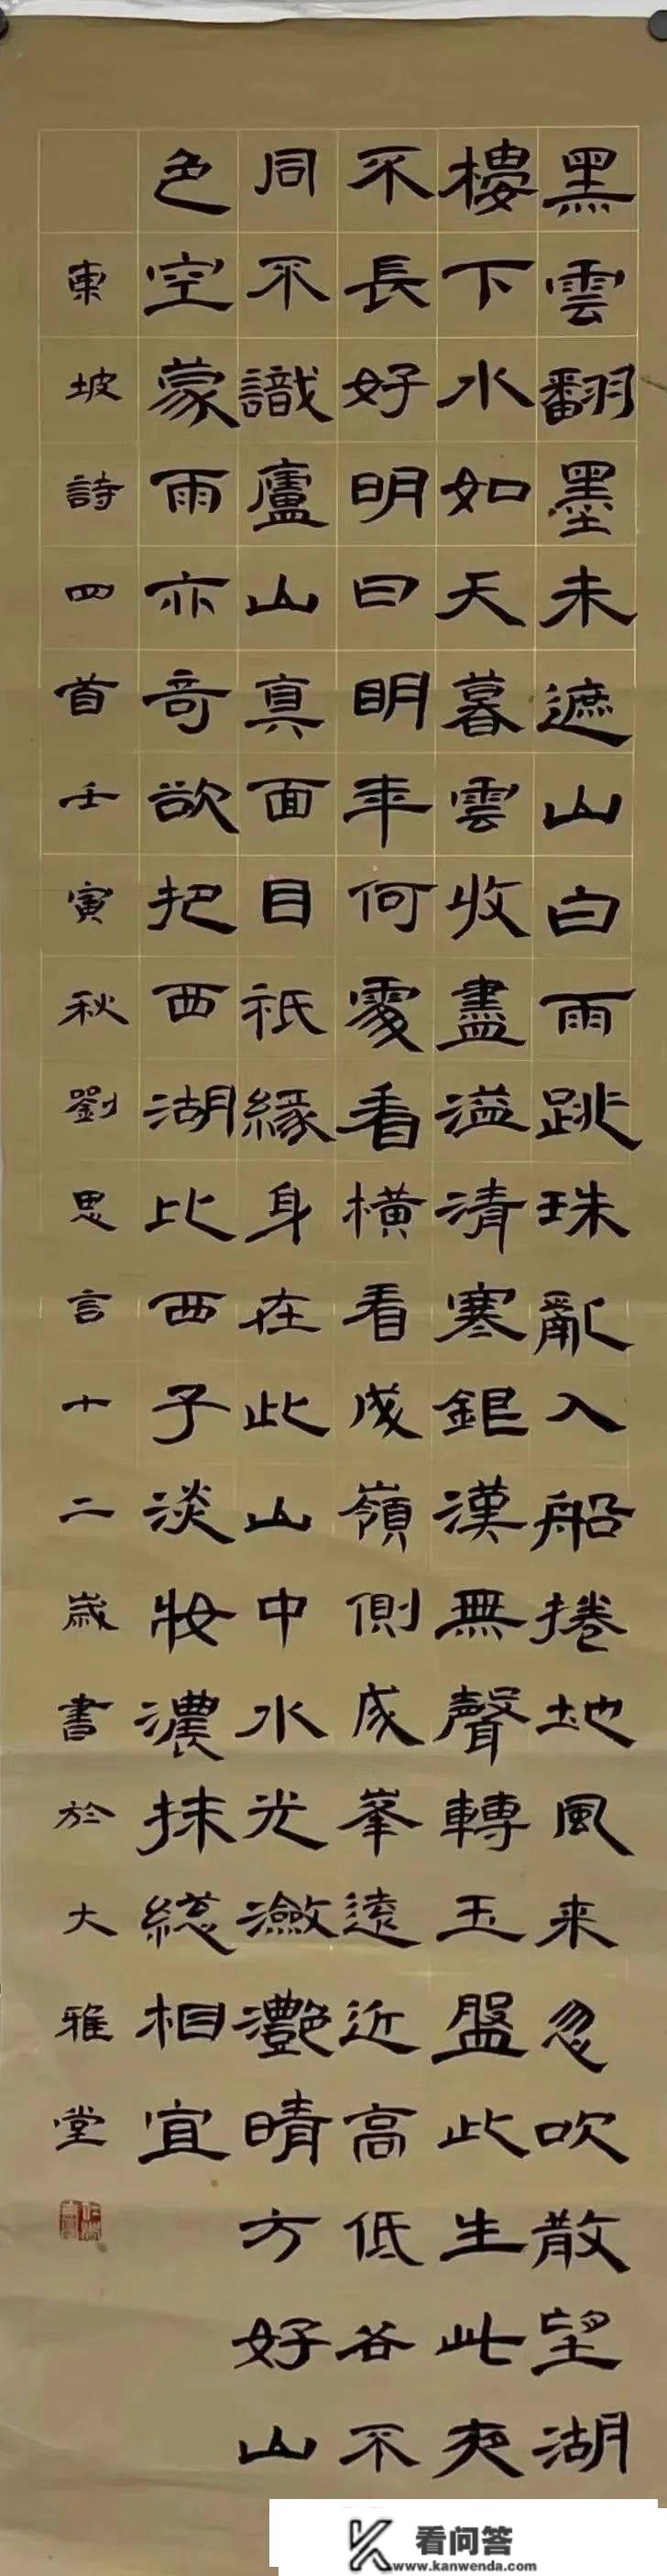 黑雲翻墨未遮山白雨跳珠亂入船捲地風来忽吹散望湖
樓下水如天暮雲收盡溢清寒銀漢無聲轉玉盤此生此夜
不長好明日明年何處看橫看成嶺側成峯遠近高低各不
同不識廬山真面目祇緣身在此山中水光瀲灧晴方好山
色空蒙雨亦奇欲把西湖比西子淡妝濃抹總相宜
東坡詩四首壬寅秋劉思言十二歲書於大雅堂
看问答
www.kanwenda.com